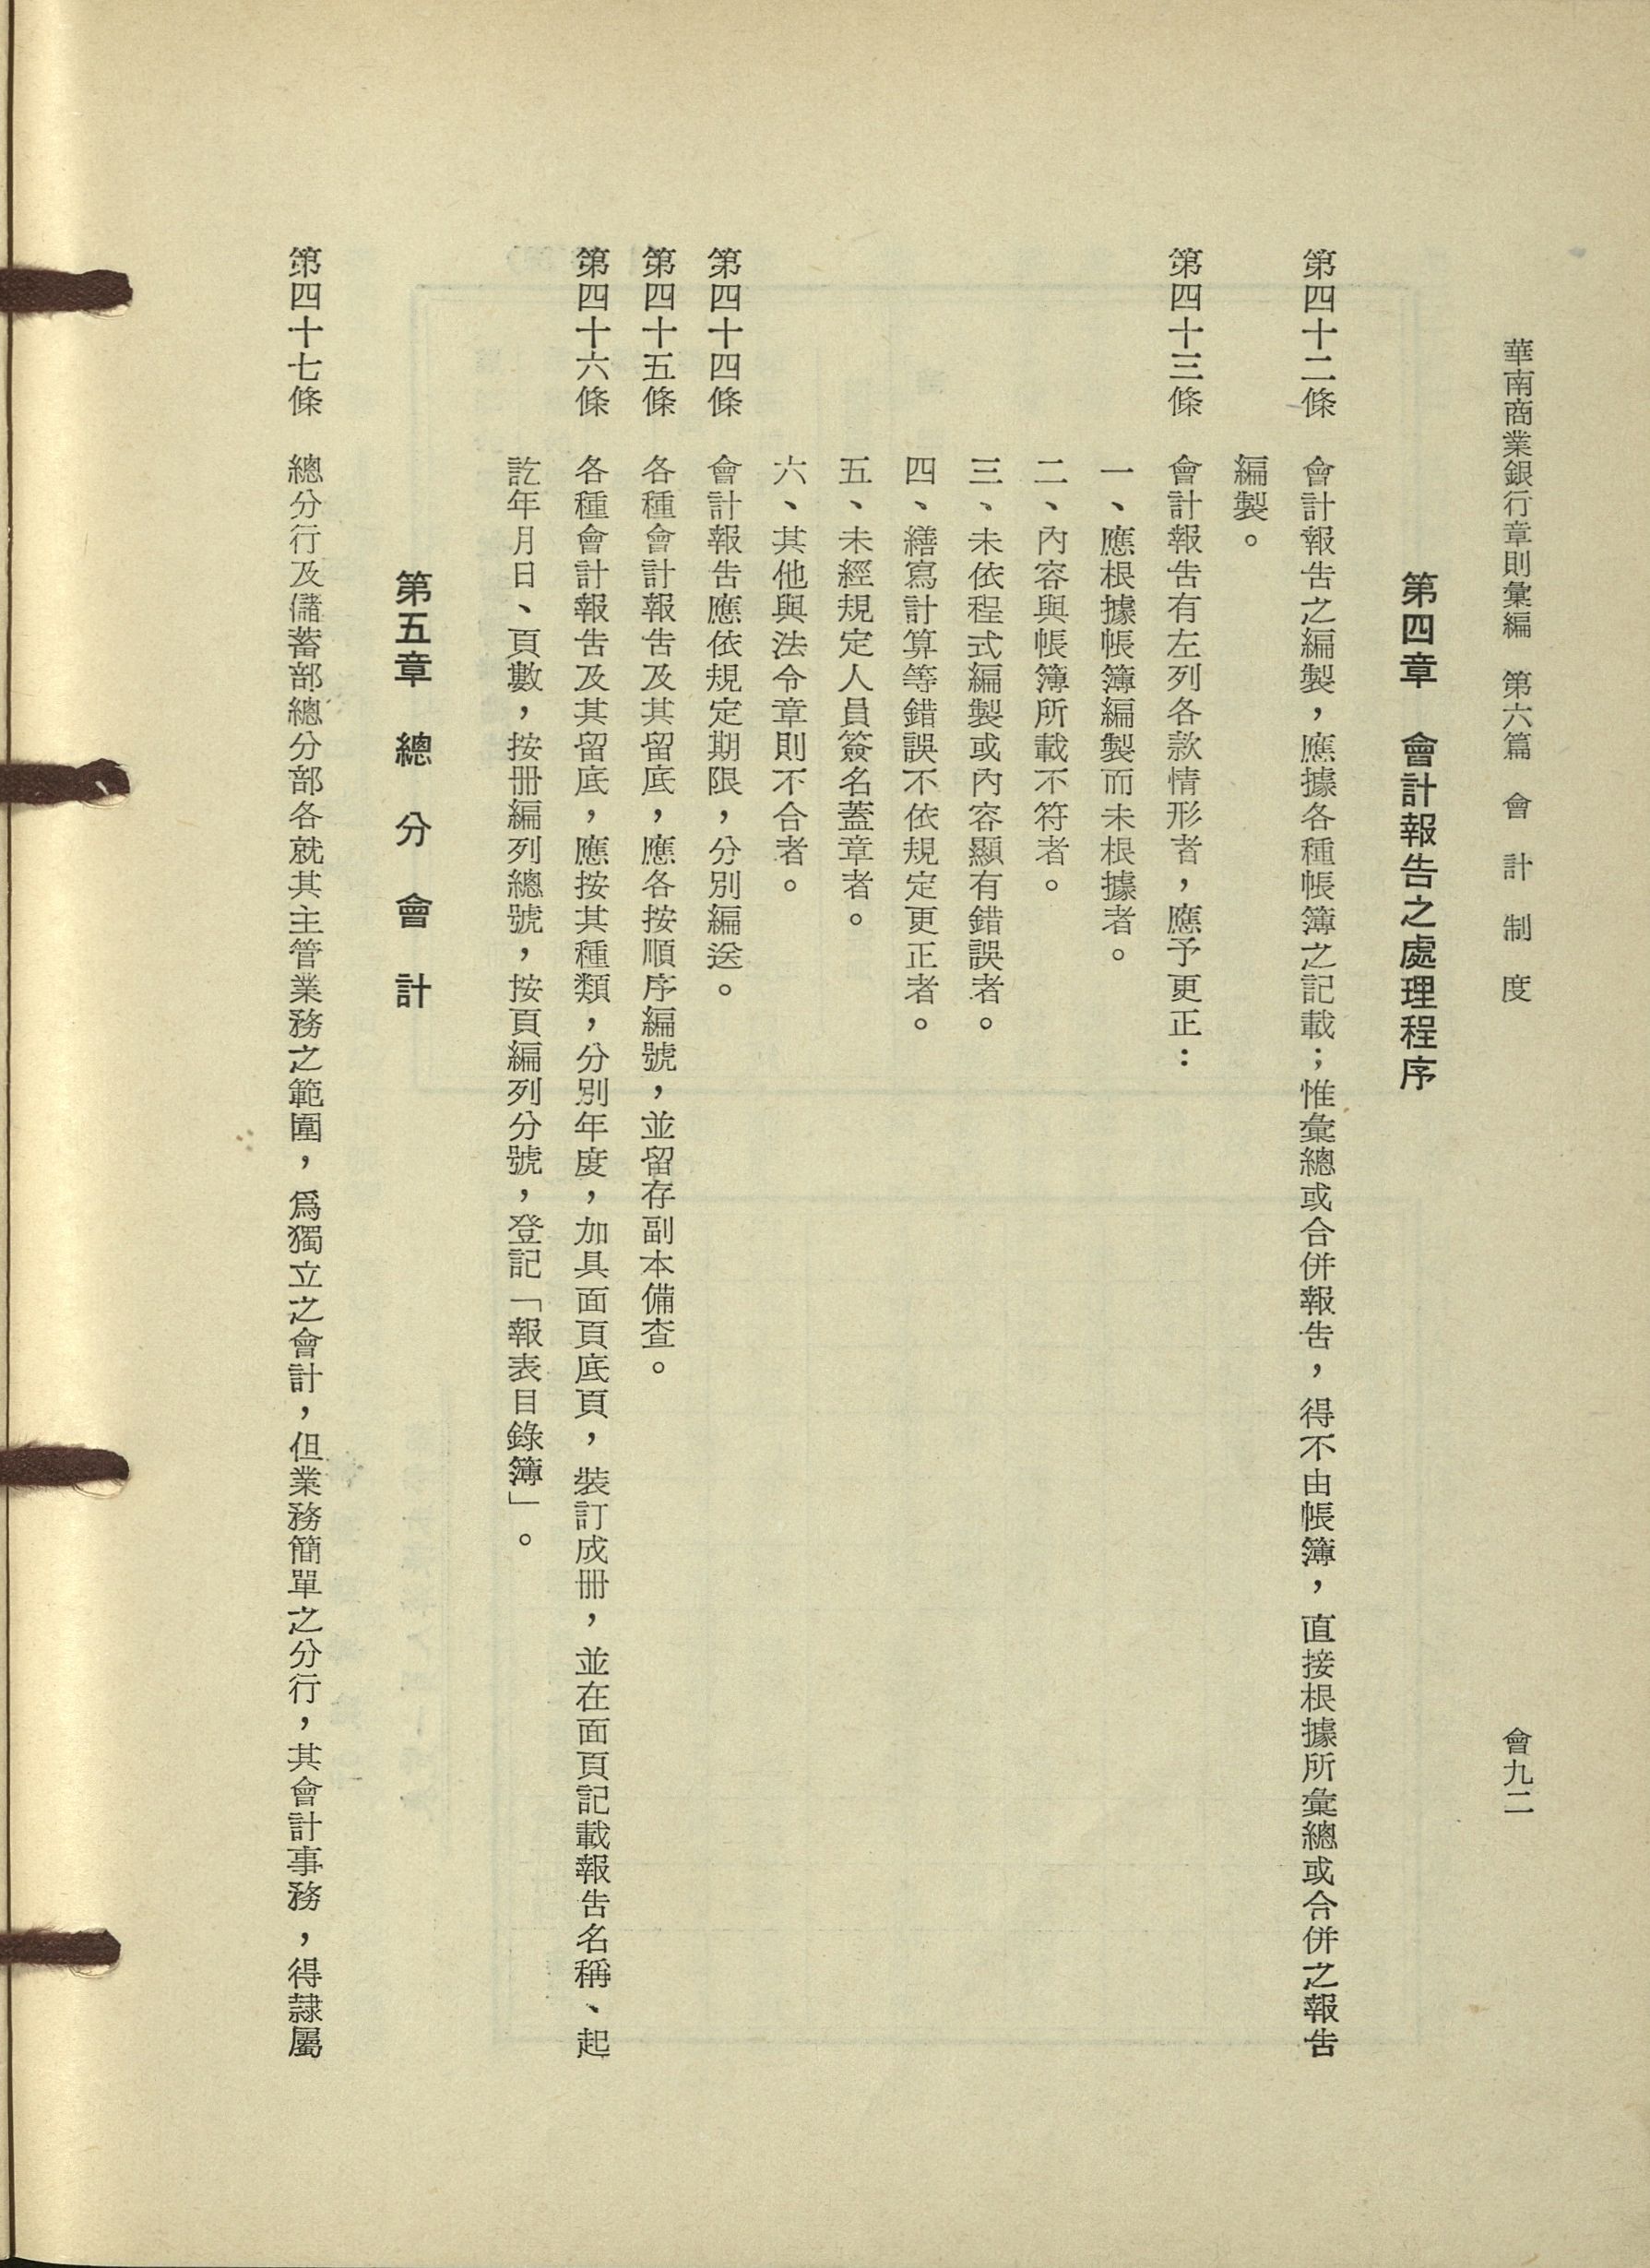 華南商業銀行章則彙編　第六篇　會計制度　會九二
第四章　會計報告之處理程序
第四十二條　會計報告之編製，應據各種帳簿之記載；惟彙總或合併報告，得不由帳簿，直接根據所彙總或合併之報告
編製。
第四十三條　會計報告有左列各款情形者，應予更正：
一、應根據帳簿編製而未根據者。
二、內容與帳簿所載不符者。
三、未依程式編製或內容顯有錯誤者。
四、繕寫計算等錯誤不依規定更正者。
五、未經規定人員簽名蓋章者。
六、其他與法令章則不合者。
第四十四條　會計報告應依規定期限，分別編送。
第四十五條　各種會計報告及其留底，應各按順序編號，並留存副本備查。
第四十六條　各種會計報告及其留底，應按其種類，分別年度，加具面頁底頁，裝訂成冊，並在面頁記載報告名稱、起
訖年月日、頁數，按冊編列總號，按頁編列分號，登記「報表目錄簿」。
第五章　總分會計
第四十七條　總分行及儲蓄部總分部各就其主管業務之範圍，爲獨立之會計，但業務簡單之分行，其會計事務，得隸屬